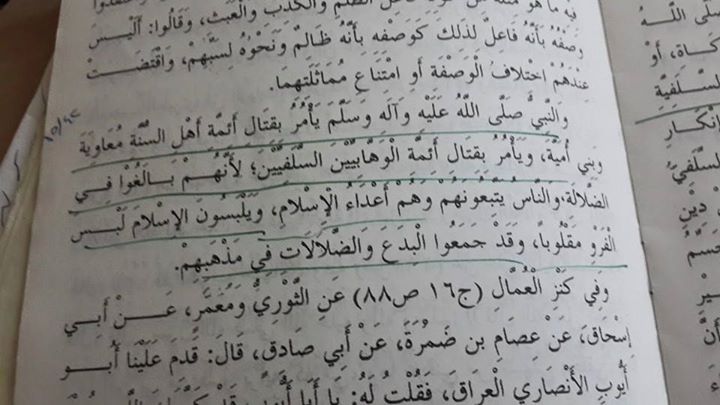 فِيهِ مَا هُوَ
الظُّلْمِ وَالْكَذِبِ وَالْعَبَثِ، وَقَالُوا: أَلَيْسَ
وَصْفُهُ بِأَنَّهُ فَاعِلٌ لِذَلِكَ كَوَصْفِهِ بِأَنَّهُ ظَالِمٌ وَنَحْوُهُ لِسَبِّهِمْ، وَاقْتَضَتْ
عِنْدَهُمْ اخْتِلَافُ الْوَصْفِهِ أَوِ امْتِنَاعِ مُمَاثَلَتِهِمَا.
وَالنَّبِيُّ صَلَّى اللَّهُ عَلَيْهِ وَآلِهِ وَسَلَّمَ يَأْمُرُ بِقِتَالِ أَئِمَّةِ أَهْلِ السُّنَّةِ مُعَاوِيَةَ
وَبَنِي أُمَيَّةَ، وَيَأْمُرُ بِقِتَالِ أَئِمَّةِ الْوَهَّابِيِّينَ السَّلَفِيِّينَ؛ لِأَنَّهُمْ بَالَغُوا فِي
الضَّلَالَةِ وَالنَّاسُ يَتَّبِعُونَهُمْ وَهُمْ أَعْدَاءُ الْإِسْلَامِ، وَيَلْبَسُونَ الْإِسْلَامَ لُبْسَ
الْفَرْوِ مَقْلُوبًا، وَقَدْ جَمَعُوا الْبِدَعَ وَالضَّلَالَاتِ فِي مَذْهَبِهِمْ.
وَفِي كَنْزِ الْعُمَّالِ (ج١٦ ص٨٨) عَنِ الثَّوْرِيِّ وَمُعَمَّرٍ، عَنْ أَبِي
إِسْحَاقَ، عَنْ عِصَامِ بْنِ ضَمُرَةَ، عَنْ أَبِي صَادِقٍ، قَالَ: قَدِمَ عَلَيْنَا أَبُو
أَيُّوبَ الْأَنْصَارِي الْعِرَاقَ، فَقُلْتُ لَهُ: يَا أَبَا أَيُّوبَ
صَلَّى اللَّهُ
كَاةَ، أَوْ
السَّلَفِيَّةِ
إِنْكَارِ
السَّلَفِيِّ
دِينِ